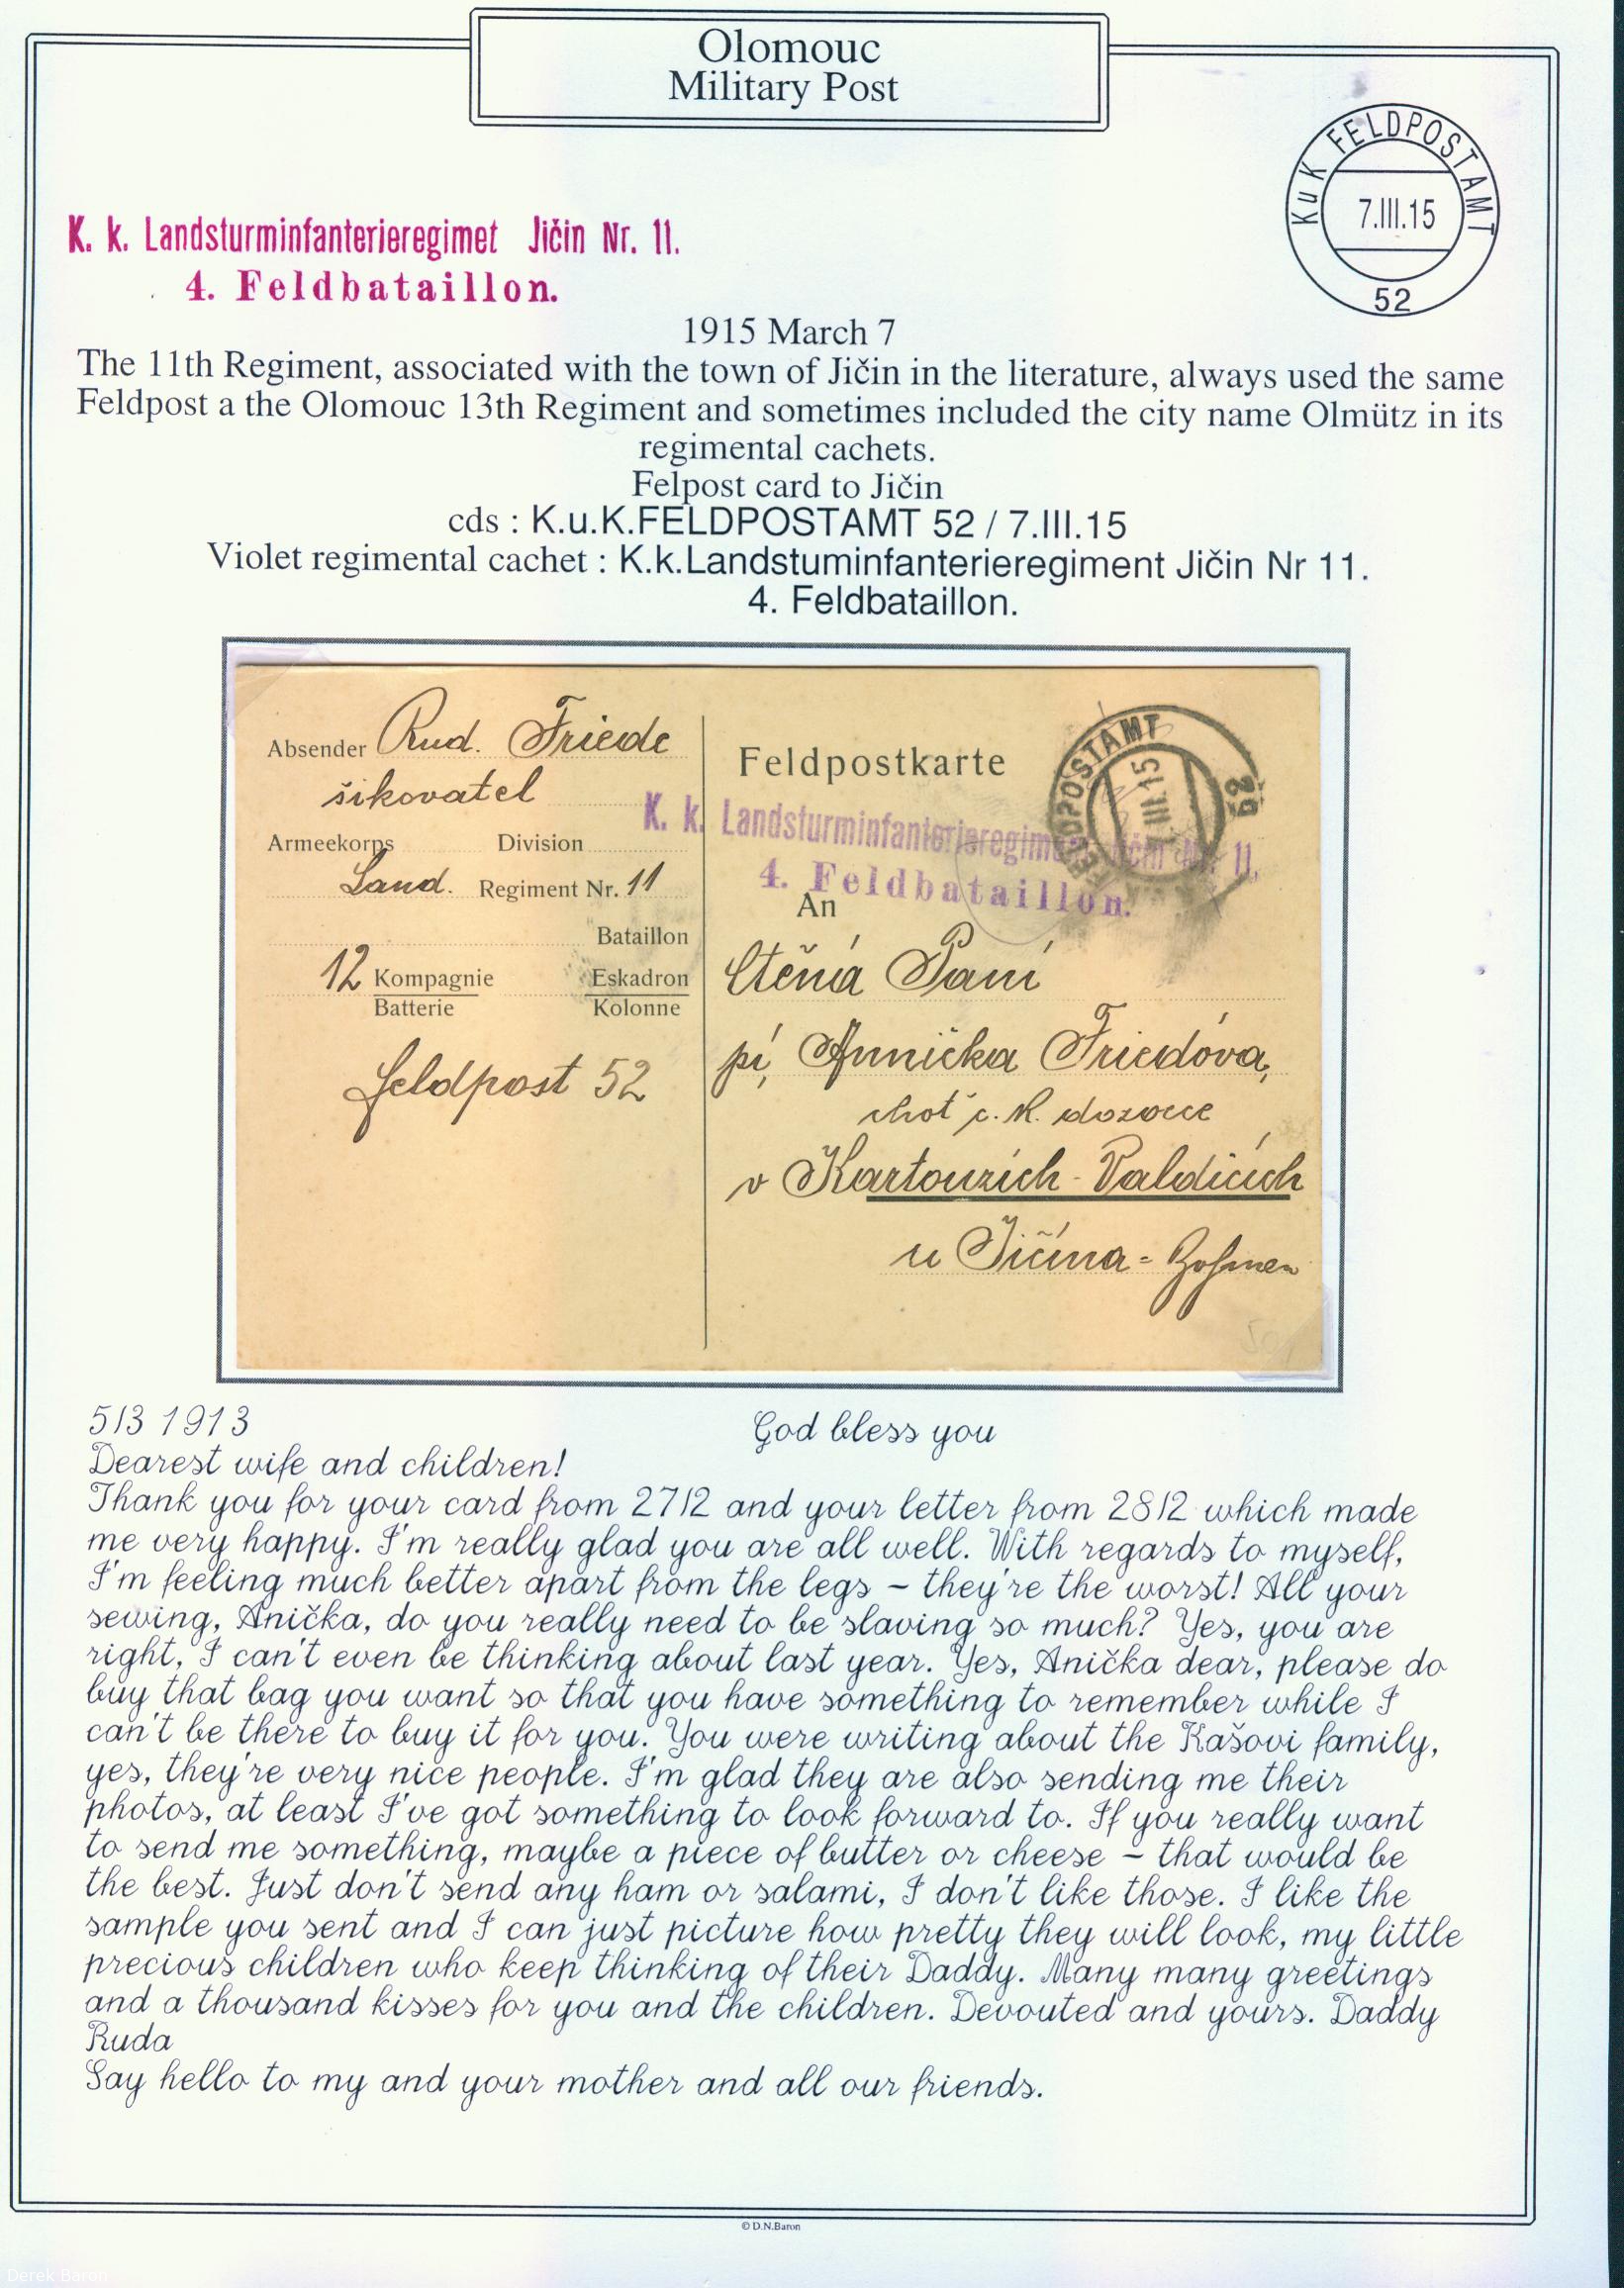 Olomouc
Military Post
KuK FELDPOSTAMT
7.III.15
52
K. k. Landsturminfanterieregimet Jičin Nr. 11.
4. Feldbataillon.
1915 March 7
The 11th Regiment, associated with the town of Jičin in the literature, always used the same
Feldpost a the Olomouc 13th Regiment and sometimes included the city name Olmütz in its
regimental cachets.
Felpost card to Jičin
cds : K.u.K.FELDPOSTAMT 52 / 7.III.15
Violet regimental cachet : K.k.Landstuminfanterieregiment Jičin Nr 11.
4. Feldbataillon.
Absender Rud. Friede
šikovatel
Armeekorps Division
Land. Regiment Nr. 11
Bataillon
12 Kompagnie Eskadron
Batterie Kolonne
feldpost 52
Feldpostkarte
FELDPOSTAMT
III 15
K. k. Landsturminfanterieregimet Jičin Nr. 11.
4. Feldbataillon.
An
Ctěná Paní
pí, Annička Friedóva,
choť c. k. dozorce
v Kartouzích - Valdicích
u Jičína = Bohmen
5/3 1913 God bless you
Dearest wife and children!
Thank you for your card from 27/2 and your letter from 28/2 which made
me very happy. I'm really glad you are all well. With regards to myself,
I'm feeling much better apart from the legs – they're the worst! All your
sewing, Anička, do you really need to be slaving so much? Yes, you are
right, I can't even be thinking about last year. Yes, Anička dear, please do
buy that bag you want so that you have something to remember while I
can't be there to buy it for you. You were writing about the Kašovi family,
yes, they're very nice people. I'm glad they are also sending me their
photos, at least I've got something to look forward to. If you really want
to send me something, maybe a piece of butter or cheese – that would be
the best. Just don't send any ham or salami, I don't like those. I like the
sample you sent and I can just picture how pretty they will look, my little
precious children who keep thinking of their Daddy. Many many greetings
and a thousand kisses for you and the children. Devouted and yours. Daddy
Ruda
Say hello to my and your mother and all our friends.
© D.N.Baron
Derek Baron